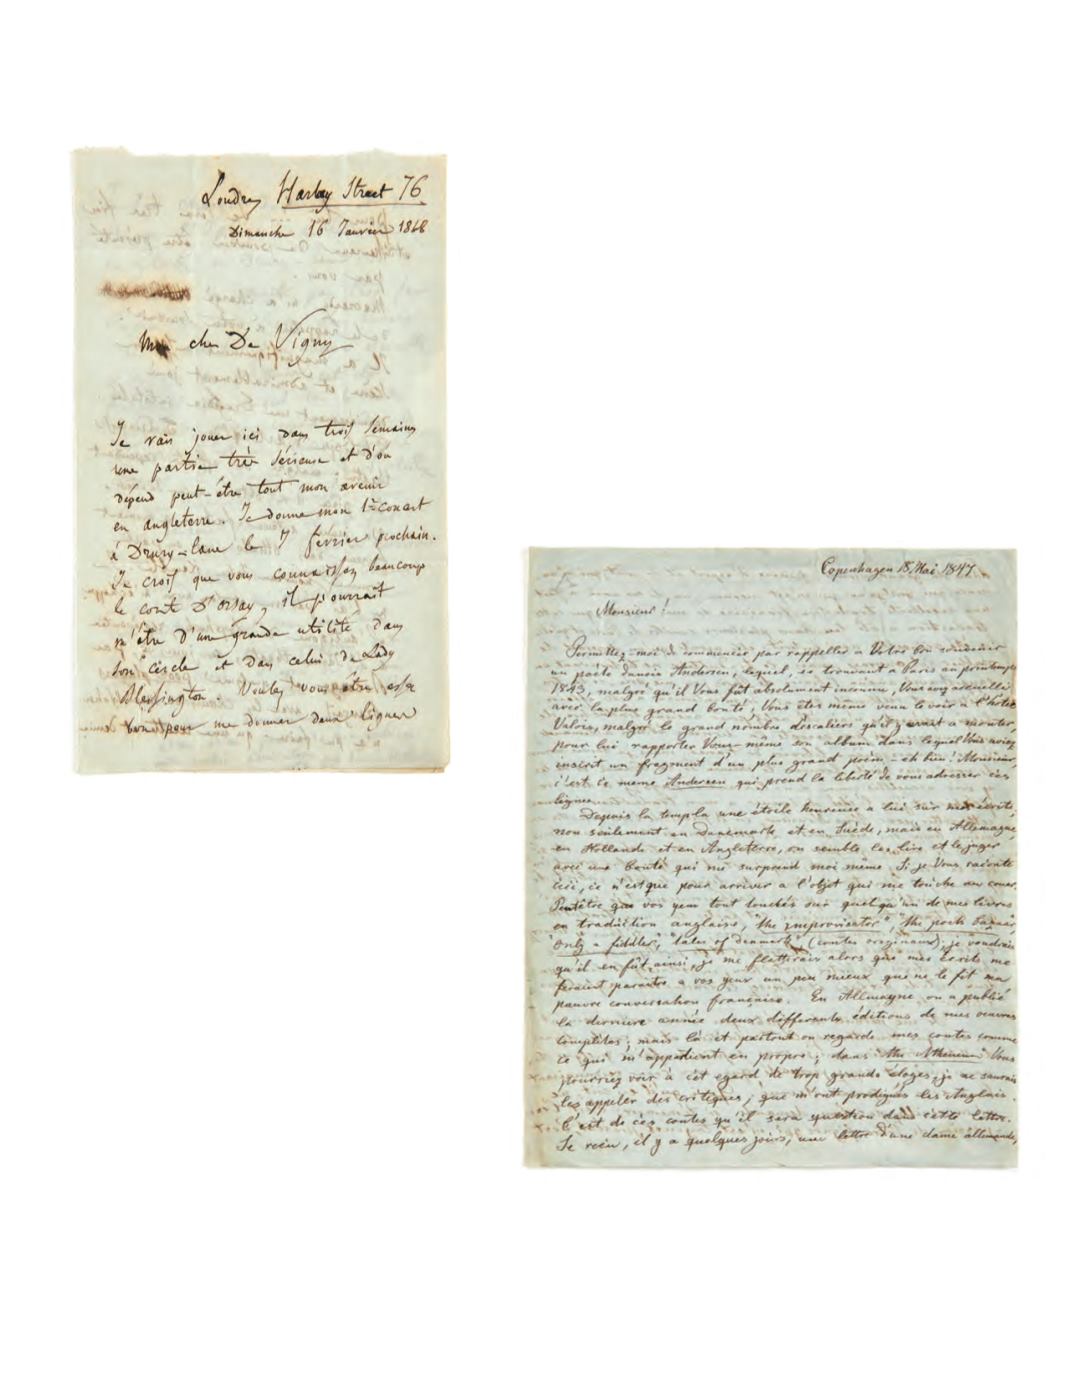 Londres Harley Street 76
Dimanche 16 Janvier 1848
Mon cher De Vigny
Je vais jouer ici dans trois semaines
une partie très sérieuse et d'où
dépend peut-être tout mon avenir
en angleterre. Je donne mon 1er concert
à Drury-lane le 7 février prochain.
Je crois que vous connaissez beaucoup
le comt D'orsay, il pourrait
m'être D'une grande utilité dans
son cercle et Dans celui de Lady
Blessington. Voulez vous être assez
bon pour me donner deux lignes
Copenhagen 18 Mai 1847
Monsieur!
Permettez-moi de commencer par rappeller a Votre bon souvenir
un poète danois Andersen, lequel, se trouvant a Paris au printemps
1843, malgré qu'il Vous fût absolument inconnu, Vous avez accueilli
avec la plus grand bonté; Vous êtes même venu le voir a l'hôtel
Valois, malgré le grand nombre d'escaliers qu'il y avait a monter,
pour lui rapporter Vous-même son album dans lequel Vous aviez
inscrit un fragment d'un plus grand poëm, – eh bien! Monsieur,
c'est ce meme Andersen qui prend la liberté de vous adresser ces
lignes.
Depuis la temps la une étoile heureuse a lui sur mes écrits,
non seulement en Danemark et en Suède, mais en Allemagne,
en Hollande et en Angleterre, on semble les lire et le juger
avec une bonté qui me surprend moi même. Si je Vous raconte
ceci, ce n'est que pour arriver a l'objet qui me touche au coeur.
Peutêtre que vos yeux tout touchés sur quelqu'un de mes livres
en traduction anglaise, "the improvisator", "the poets bazaar",
"only a fiddler", "tales of denmark" (contes originaux); je voudrais
qu'il en fût ainsi, je me flatterais alors que mes écrits me
feraient paraitre a vos yeux un peu mieux que ne le fit ma
pauvre conversation française. En Allmagne on a publié
la derniere année deux differents éditions de mes oeuvres
completes; mais là et partout on regarde mes contes comme
ce qui m'appartient en propre; dans "the Atheneum" Vous
pourriez voir à cet egard de trop grands éloges, je ne saurais
les appeler des critiques, que m'ont prodigués les Anglais.
C'est de ces contes qu'il sera question dans cette lettre.
Je recu, il y a quelques jours, une lettre d'une dame allemande,